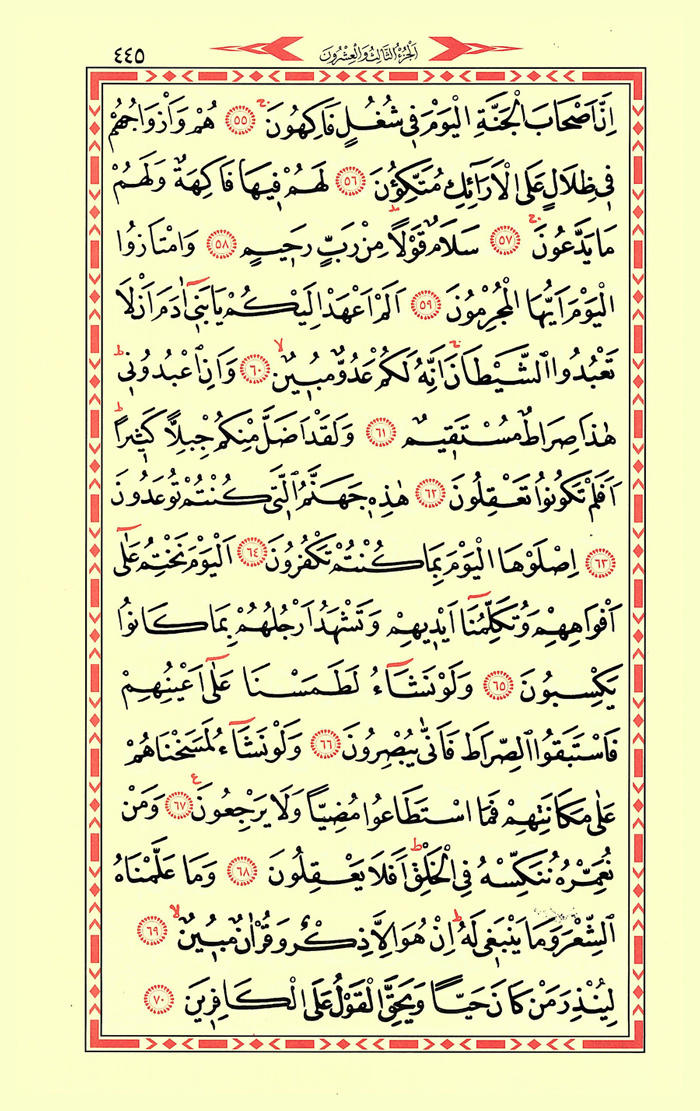 الجزء الثالث والعشرون
٤٤٥
اِنَّ اَصْحَابَ الْجَنَّةِ الْيَوْمَ فٖى شُغُلٍ فَاكِهُونَۚ ﴿٥٥﴾ هُمْ وَاَزْوَاجُهُمْ
فٖى ظِلَالٍ عَلَى الْاَرَٓائِكِ مُتَّكِؤُ۫نَ ﴿٥٦﴾ لَهُمْ فٖيهَا فَاكِهَةٌ وَلَهُمْ
مَا يَدَّعُونَۚ ﴿٥٧﴾ سَلَامٌ قَوْلاً مِنْ رَبٍّ رَحٖيمٍ ﴿٥٨﴾ وَامْتَازُوا
الْيَوْمَ اَيُّهَا الْمُجْرِمُونَ ﴿٥٩﴾ اَلَمْ اَعْهَدْ اِلَيْكُمْ يَا بَنٖٓى اٰدَمَ اَنْ لَا
تَعْبُدُوا الشَّيْطَانَۚ اِنَّهُ لَكُمْ عَدُوٌّ مُبٖينٌۙ ﴿٦٠﴾ وَاَنِ اعْبُدُونٖىؕ
هٰذَا صِرَاطٌ مُسْتَقٖيمٌ ﴿٦١﴾ وَلَقَدْ اَضَلَّ مِنْكُمْ جِبِلاًّ كَثٖيراًؕ
اَفَلَمْ تَكُونُوا تَعْقِلُونَ ﴿٦٢﴾ هٰذِهٖ جَهَنَّمُ الَّتٖى كُنْتُمْ تُوعَدُونَ
﴿٦٣﴾ اِصْلَوْهَا الْيَوْمَ بِمَا كُنْتُمْ تَكْفُرُونَ ﴿٦٤﴾ اَلْيَوْمَ نَخْتِمُ عَلٰٓى
اَفْوَاهِهِمْ وَتُكَلِّمُنَٓا اَيْدٖيهِمْ وَتَشْهَدُ اَرْجُلُهُمْ بِمَا كَانُوا
يَكْسِبُونَ ﴿٦٥﴾ وَلَوْ نَشَٓاءُ لَطَمَسْنَا عَلٰٓى اَعْيُنِهِمْ
فَاسْتَبَقُوا الصِّرَاطَ فَاَنّٰى يُبْصِرُونَ ﴿٦٦﴾ وَلَوْ نَشَٓاءُ لَمَسَخْنَاهُمْ
عَلٰى مَكَانَتِهِمْ فَمَا اسْتَطَاعُوا مُضِياًّ وَلَا يَرْجِعُونَ ﴿٦٧﴾ وَمَنْ
نُعَمِّرْهُ نُنَكِّسْهُ فِى الْخَلْقِؕ اَفَلَا يَعْقِلُونَ ﴿٦٨﴾ وَمَا عَلَّمْنَاهُ
الشِّعْرَ وَمَا يَنْبَغٖى لَهُؕ اِنْ هُوَ اِلاَّ ذِكْرٌ وَقُرْاٰنٌ مُبٖينٌۙ ﴿٦٩﴾
لِيُنْذِرَ مَنْ كَانَ حَياًّ وَيَحِقَّ الْقَوْلُ عَلَى الْكَافِرٖينَ ﴿٧٠﴾